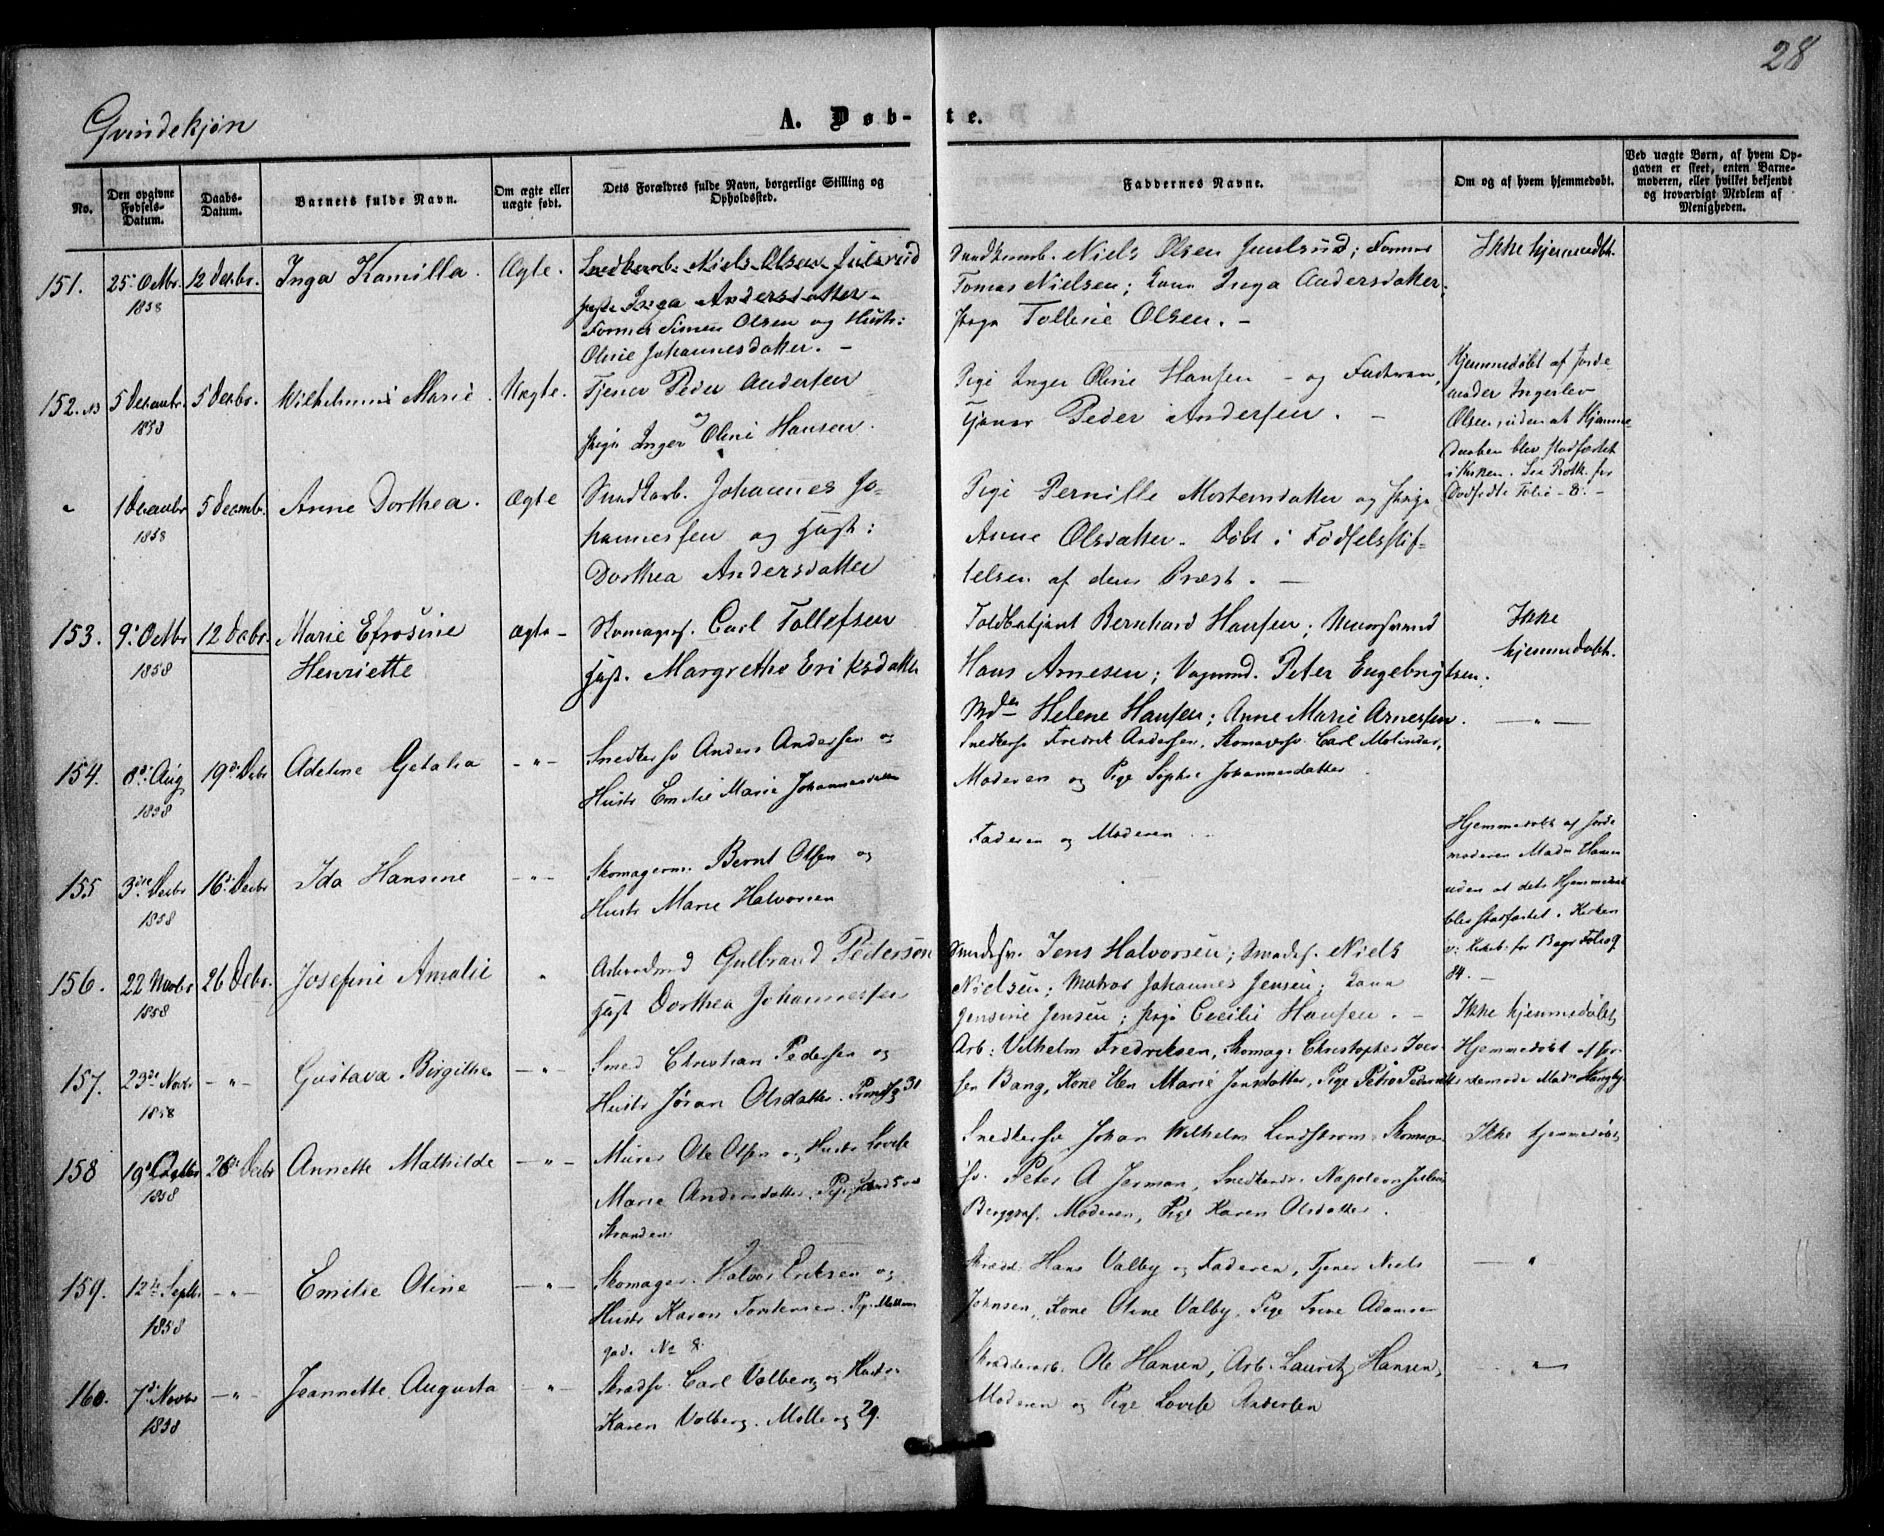 28
Qvindekjøn
A. Døb-te.
No.
Den opgivne Fødsels-Datum.
Daabs-Datum.
Barnets fulde Navn.
Om ægte eller uægte født.
Dets Forældres fulde Navn, borgerlige Stilling og Opholdssted.
Faddernes Navne.
Om og af hvem hjemmedøbt.
Ved uægte Børn, af hvem Opgaven er skeet, enten Barnemoderen, eller hvilket bekjendt og troværdigt Medlem af Menigheden.
151. 25 Octbr. 1858 12 Decbr. Inga Kamilla. Ægte.
Niels Olsen Julsrud
Inga Andersdatter
Former Simen Olsen og Hustr:
Oline Johannesdatter. –
Niels Olsen Juulsrud; Former
Tomas Nielsen; Kone Inga Andersdatter;
Pige Talline Olsen. –
Ikke hjemmedøbt.
152. 5 Decembr. 1858 5 Decbr. Wilhelmine Marie. Uægte.
Tjener Peder Andersen
Pige Inger Oline Hansen.
Pige Inger Oline Hansen – og Faderen,
Tjener Peder Andersen. –
Hjemmedøbt af Jorde
moder Ingerlev
Olsen, uden at Hjemme
Daaben blev stadfæstet
i Kirken. See Protk. for
Dødfødte Folie 8. –
" 1 Decembr 1858 5 Decemb. Anne Dorthea. Ægte
Johannes Jo-
hannessen og Hust:
Dorthea Andersdatter
Pige Pernille Mortensdatter og Pige
Anne Olsdatter. Døbt i Fødselsstif-
telsen af dens Præst. –
153. 9 Octbr 1858 12 Decbr. Marie Efrosine
Henriette
Ægte –
Skomagersv. Carl Tollefsen
Hust. Margrethe Eriksdatter
Toldbetjent Bernhard Hansen; Muursvend
Hans Arnesen; Vognmd. Peter Engebrigtsen;
Mdm Helene Hansen; Anne Marie Arnessen.
Ikke
hjemmedøbt.
154. 8de Aug 1858 19de Decbr Adeline Getalia – " –
Snedkersv Anders Andersen og
Hustr Emilie Marie Johannesdatter
Snedkersv Fredrik Andersen, Skomagersv. Carl Molinder,
Moderen og Pige Sophie Johannesdatter
– " –
155 3die Decbr 1858 16de Decbr Ida Hansine – " –
Skomagerm. Bernt Olsen og
Hustr Marie Halvorsen
Faderen og Moderen
Hjemmedøbt af Jorde
moderen Madm Hansen
uden at dets Hjemmedaab
blev stadfæstet i Kirken
v: Kirkeb: for Begr Folio 9
84. –
156. 22 Novbr 1858 26 Debr. Josefine Amalie "
Gulbrand Pedersen
Hust Dorthea Johannessen
Jens Halvorsen; Niels
Nielsen; Matros Johannes Jensen; Kone
Jensine Jensen; Pige Cecilie Hansen. –
Ikke hjemmedøbt,
157. 23de Novbr 1858 – " – Gustava Birgithe – " –
Smed Christian Pedersen og
Hustr Jøran Olsdatter. 31
Arb: Vilhelm Fredriksen, Skomag: Christopher Iver-
sen Bang, Kone Elen Marie Jonsdatter, Pige Petra Pedersen
Hjemmedøbt af Jor-
demoder Madm
158 19de 1858 26de Decbr Annette Mathilde – " –
Murer Ole Olsen og Hustr Lovise
Marie Andersdatter,
Stranden
Snedkersv Johan Wilhelm Lindstrøm, Skomager
sv. Peter A Jerman, Napoleon
Berggraf. Moderen, Pige Karen Olsdatter.
Ikke hjemmedøbt
159. 12te Septbr 1858 – " – Emilie Oline – " –
Skomager. Halvor Eriksen og
Hustr Karen Torstensen
gade No 8.
Skrædd. Hans Valby og Faderen, Tjener Niels
Johnsen, Kone Oline Valby, Pige Trine Adamsen
– " –
160. 7de Novbr 1858 – " – Jeannette Augusta – " –
Skrædsv. Carl Volberg og Hustr.
Karen Volberg. Mollerg 29.
Skrædderarb. Ole Hansen, Arb. Lauritz Hansen,
Moderen og Pige Lovise Andersen
– " –